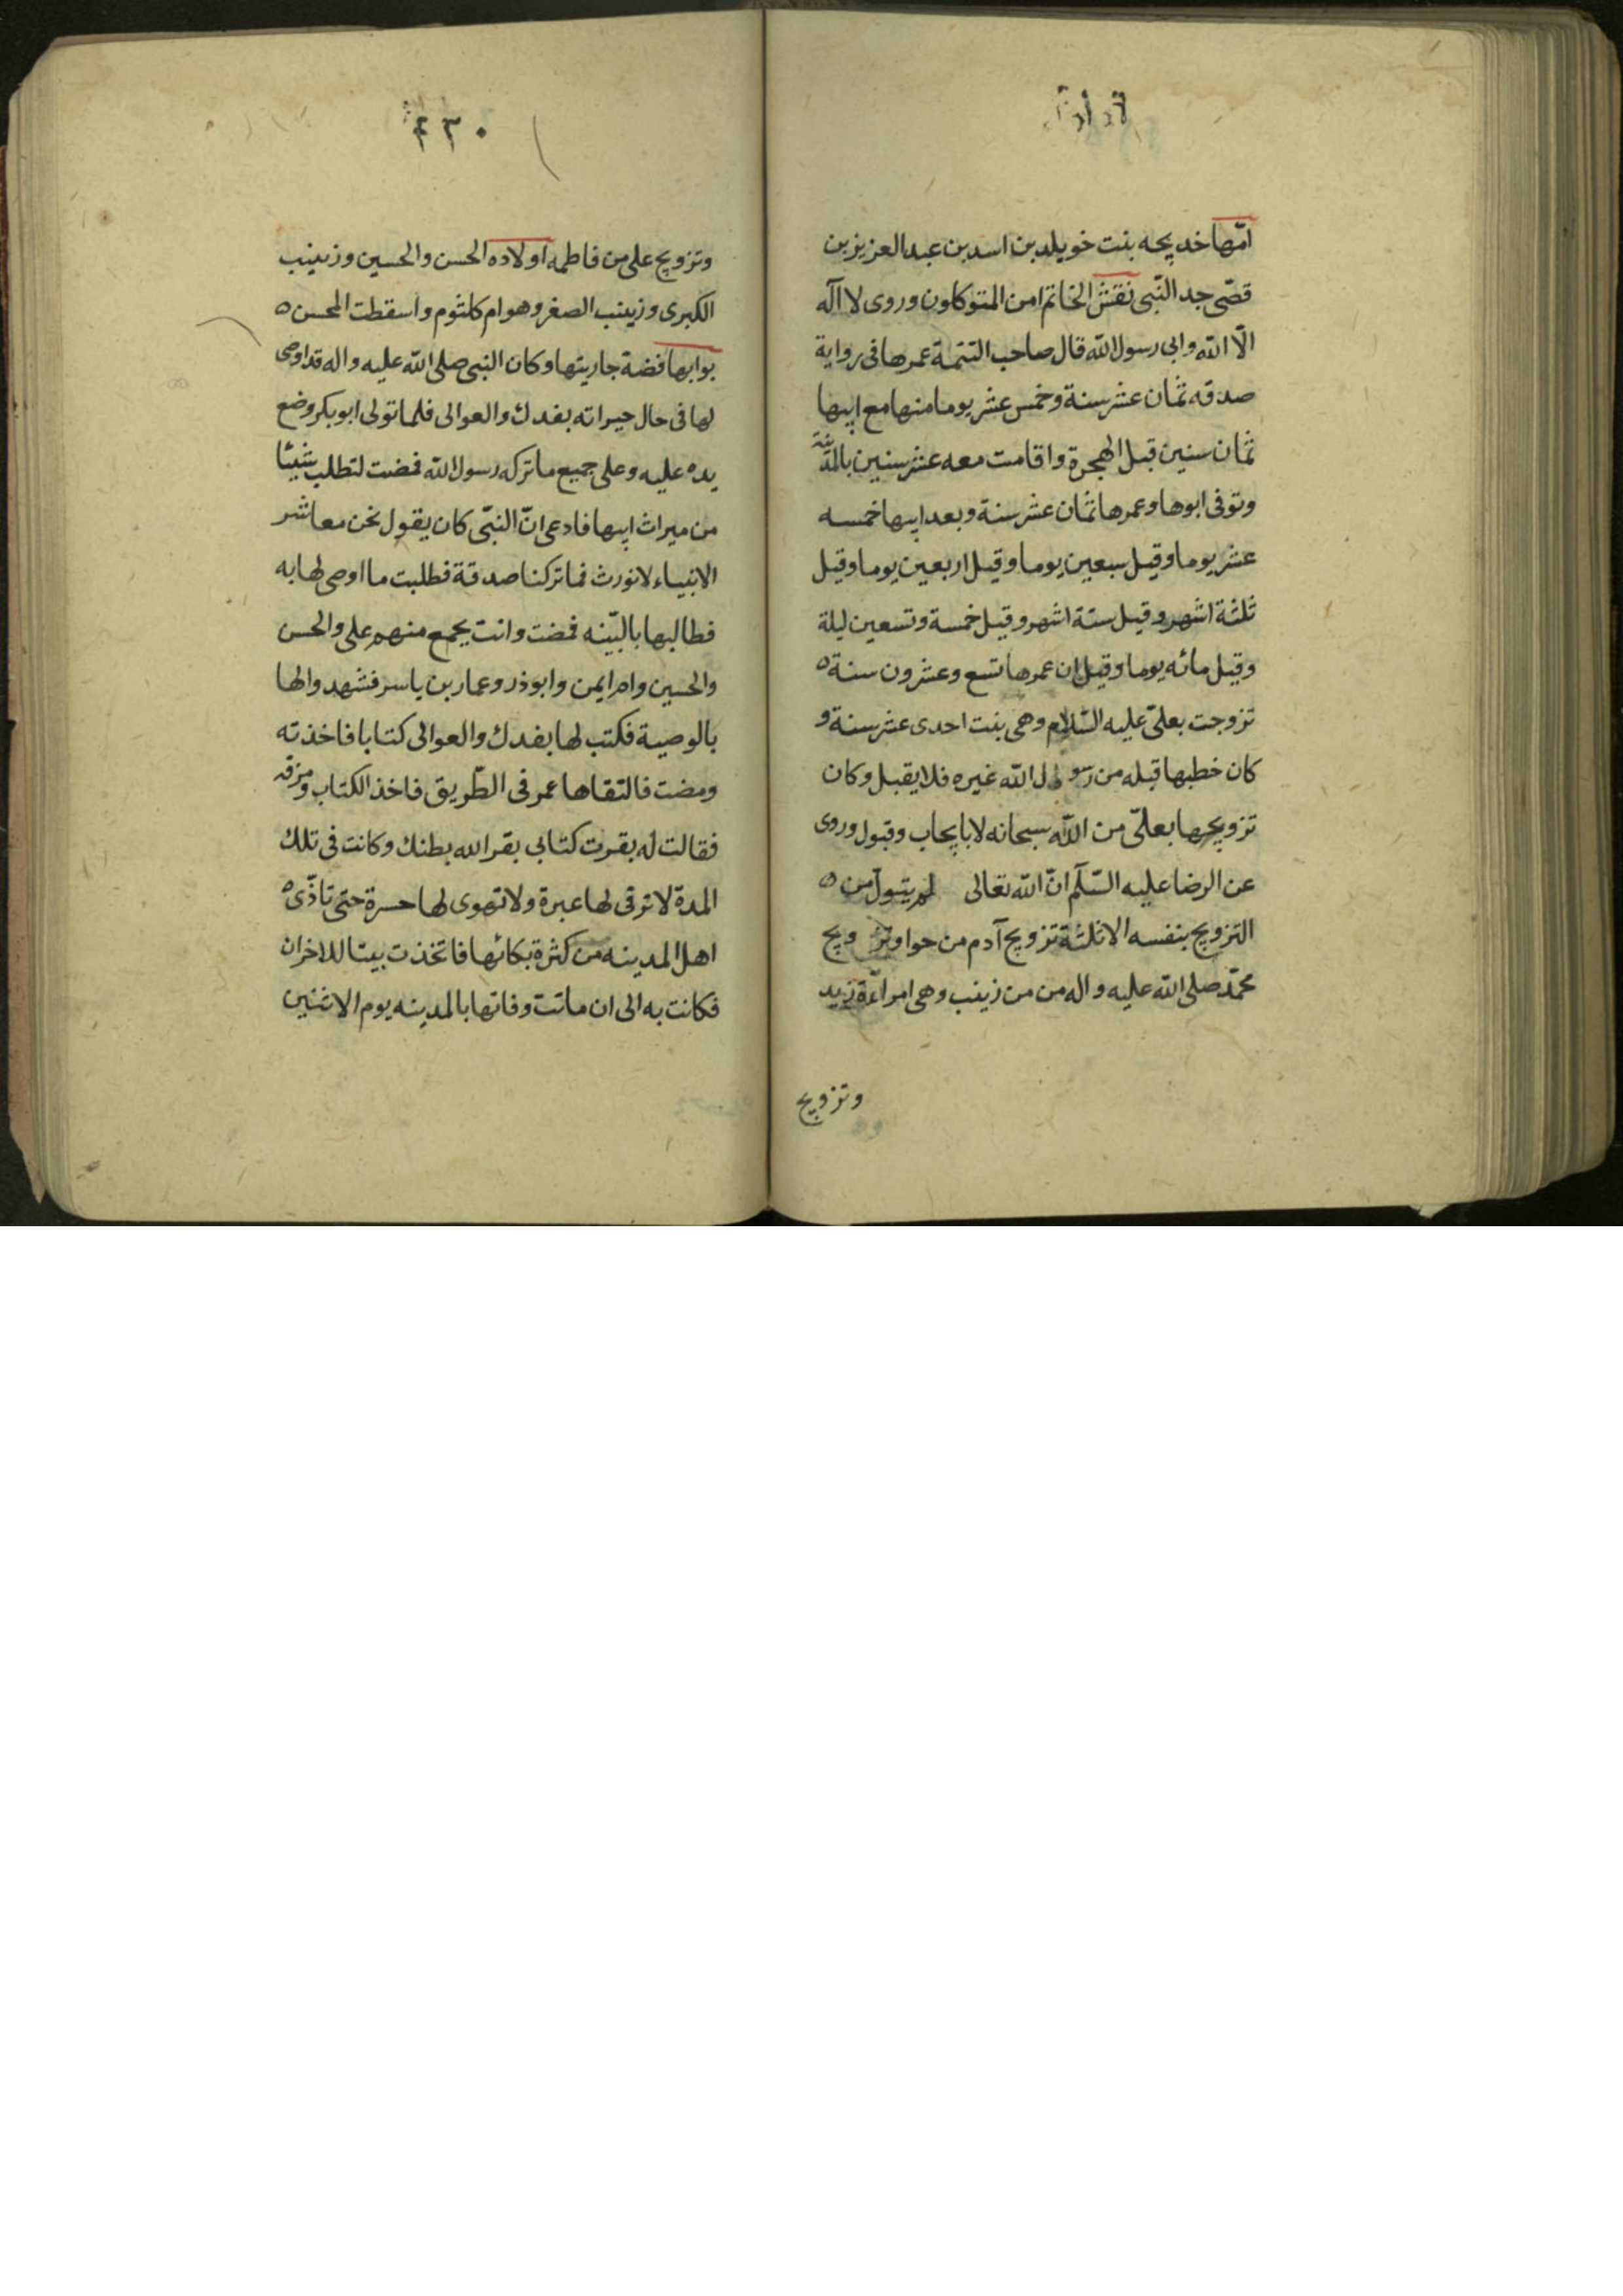 امّها خديجه بنت خويلد بن اسد بن عبد العزيز بن
قصّى جد النّبى نقش الخاتم امن المتوكلون وروى لا اله
الّا الله وابى رسول الله قال صاحب التتمة عمرها فى رواية
صدقه ثمان عشر سنة وخمس عشر يوما منها مع ابيها
ثمان سنين قبل الهجرة واقامت معه عشر سنين بالمدينة
وتوفى ابوها وعمرها ثمان عشر سنة وبعد ابيها خمسه
عشر يوما وقيل سبعين يوما وقيل اربعين يوما وقيل
ثلثة اشهر وقيل ستة اشهر وقيل خمسة وتسعين ليلة
وقيل مائه يوما وقيل ان عمرها تسع وعشرون سنة ه
تزوجت بعلىّ عليه السّلام وهى بنت احدى عشر سنة و
كان خطبها قبله من رسول الله غيره فلا يقبل وكان
تزويجها بعلىّ من الله سبحانه لا بايجاب وقبول وروى
عن الرضا عليه السّلم انّ الله تعالى لم يتول من ه
التزويج بنفسه الا ثلثة تزويج آدم من حوا وتزويج
محمّد صلى الله عليه واله من من زينب وهى امراءة زيد
وتزويج
٤٣٠
وتزويج على من فاطمه اولاده الحسن والحسين وزينب
الكبرى وزينب الصغر وهو ام كلثوم واسقطت المحسن ه
بوابها فضة جاريتها وكان النبى صلى الله عليه واله قد اوصى
لها فى حال حيراته بفدك والعوالى فلما تولى ابو بكر وضع
يده عليه وعلى جميع ما تركه رسول الله فمضت لتطلب شيئا
من ميراث ابيها فادعى انّ النبّى كان يقول نحن معاشر
الانبياء لا نورث فما تركنا صدقة فطلبت ما اوصى لها به
فطالبها بالبّينه فمضت وانت بجمع منهم على والحسن
والحسين وام ايمن وابوذر وعمار بن ياسر فشهد والها
بالوصية فكتب لها بفدك والعوالى كتابا فاخذته
ومضت فالتقاها عمر فى الطّريق فاخذ الكتاب ومزقه
فقالت له بقرت كتابى بقر الله بطنك وكانت فى تلك
المدة لا ترقى لها عبرة ولا تهوى لها حسرة حتى تاذّى ه
اهل المدينه من كثرة بكائها فاتخذت بيتا للاخران
فكانت به الى ان ماتت وفاتها بالمدينه يوم الاثنين